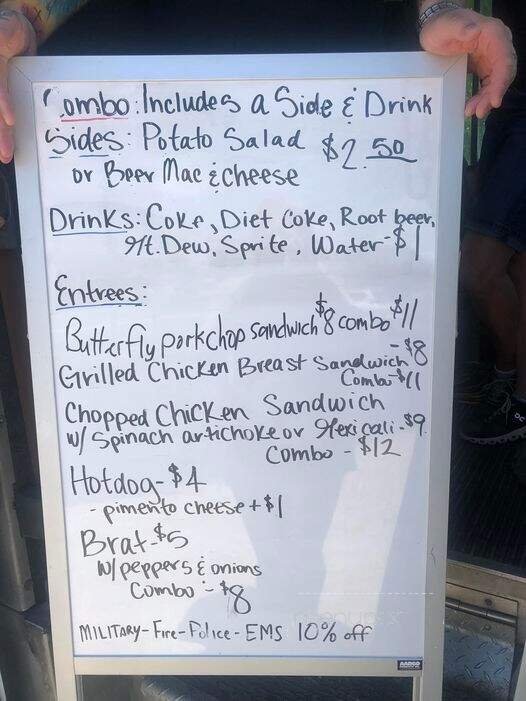 Combo: Includes a Side & Drink
Sides: Potato Salad $2.50
or Beer Mac & cheese
Drinks: Coke, Diet Coke, Root beer,
Mt. Dew, Sprite, Water - $1
Entrees:
Butterfly porkchop sandwich $8 combo $11
Grilled Chicken Breast Sandwich - $8
Combo $11
Chopped Chicken Sandwich
w/ Spinach artichoke or Mexicali - $9
Combo - $12
Hotdog - $4
- pimento cheese + $1
Brat - $5
w/ peppers & onions
Combo - $8
MILITARY - Fire - Police - EMS 10% off
AARCO